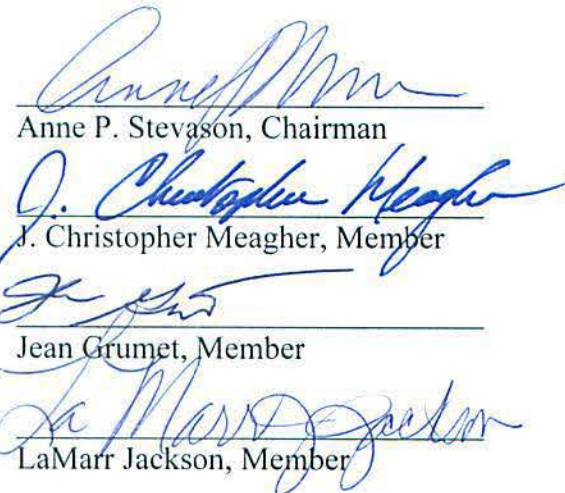 Anne P. Stevason, Chairman
J. Christopher Meagher
J. Christopher Meagher, Member
Jean Grumet, Member
LaMarr J. Jackson
LaMarr Jackson, Member